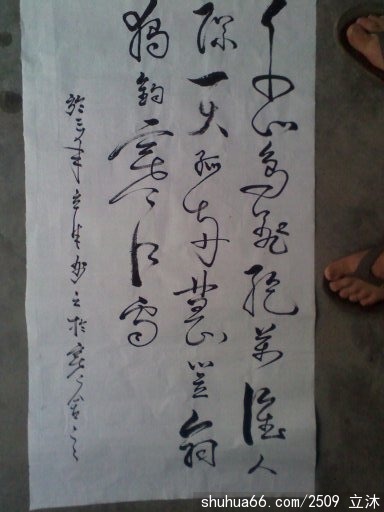 千山鳥飛絕萬徑人
踪灭孤舟蓑笠翁
獨釣寒江雪
shuhua66.com/2509 立沐